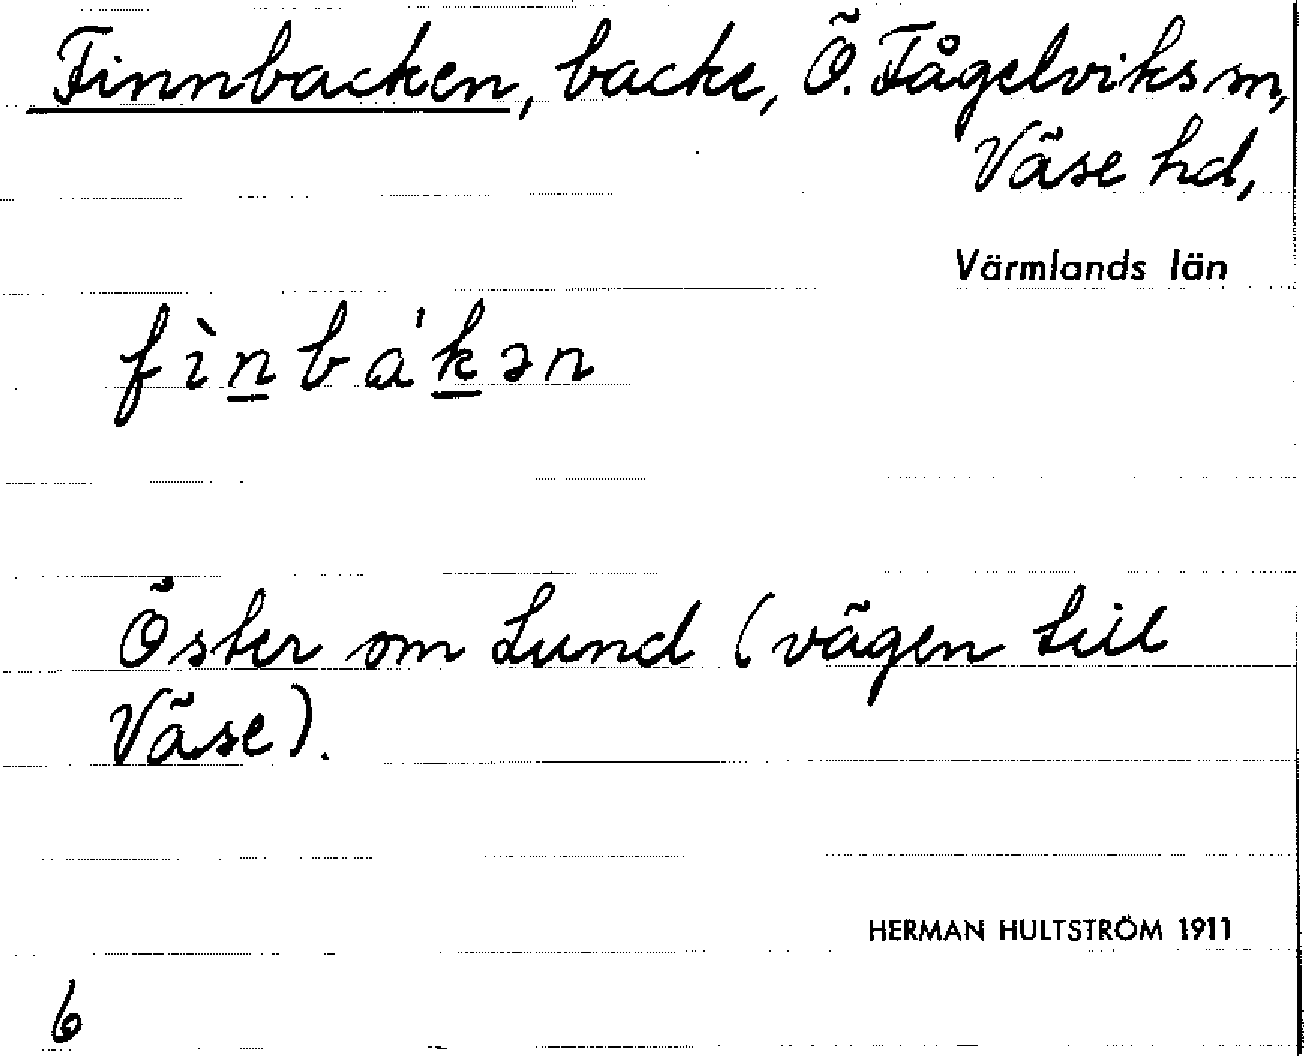 Finnbacken, backe, Ö. Fågelviks sn,
Väse hd,
Värmlands län
fìn̲bá'k̲ən
Öster om Lund (vägen till
Väse).
HERMAN HULTSTRÖM 1911
6